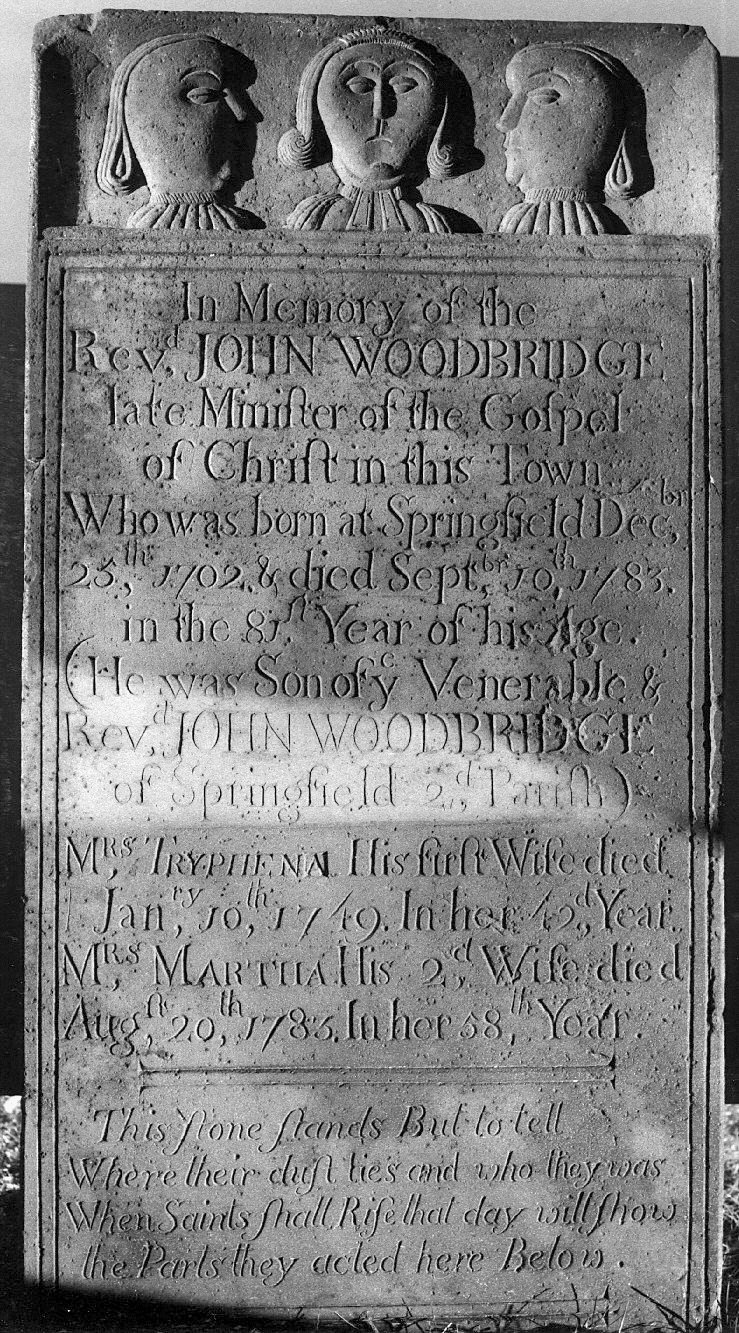 In Memory of the
Rev.d JOHN WOODBRIDGE
late Miniſter of the Goſpel
of Chriſt in this Town
Who was born at Springfield Dec,br
25,th 1702. & died Sept,br 10,th 1783.
in the 81,ſt Year of his Age.
(He was Son of ye Venerable &
Rev,d JOHN WOODBRIDGE
of Springfield 2,d Pariſh)
Mrs, TRYPHENA His firſt Wife died
Jan,ry 10,th 1749. In her 42,d Year.
Mrs, MARTHA His 2,d Wife died
Augſt, 20,th 1783. In her 58,th Year.
This ſtone ſtands But to tell
Where their duſt lies and who they was
When Saints ſhall Riſe that day will ſhow
the Parts they acted here Below.